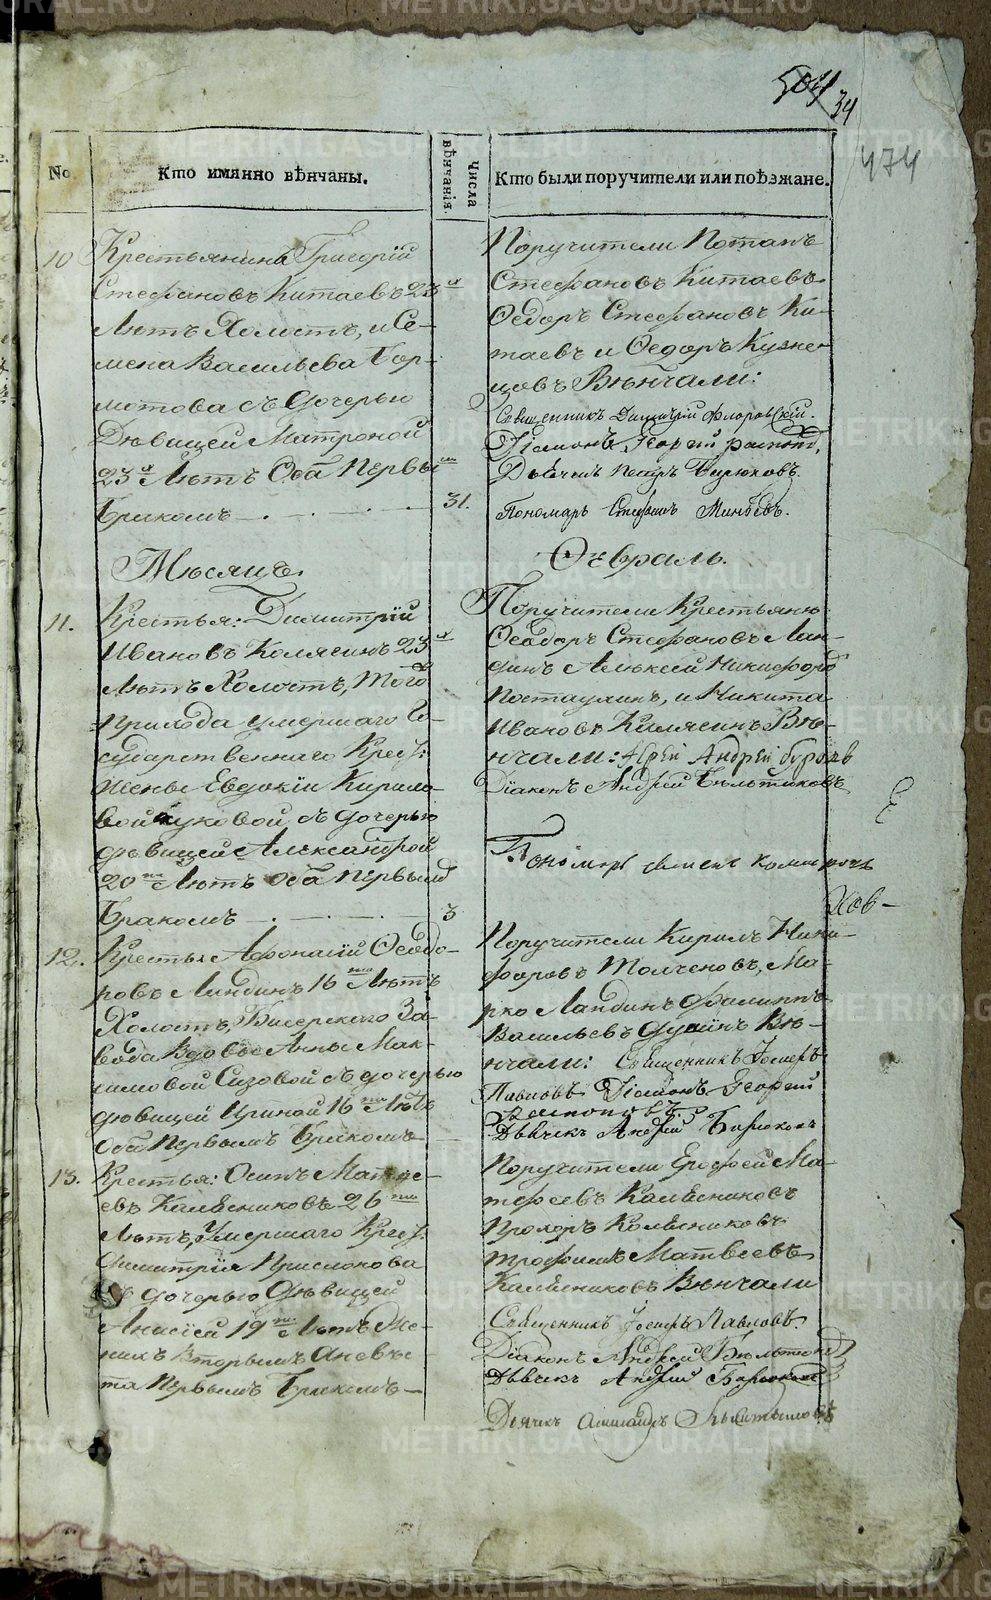 504
34
474
No
Кто имянно вѣнчаны.
Числа вѣнчанія.
Кто были поручители или поѣзжане.
10 Крестьянинъ Григорій
Стефановъ Китаевъ 23 х
Лѣтъ Холостъ, и Се-
мена Васильева Бор-
мотова съ дочерью
Дѣвицей Матроной
23 х Лѣтъ Оба Первы мъ
Бракомъ 31.
Поручители Потапъ
Стефановъ Китаевъ
Ѳедоръ Стефановъ Ки-
таевъ и Ѳедоръ Кузне-
цовъ Вѣнчали:
Священникъ Димитрій Флоровскій.
Діаконъ Георгій
Дьячекъ Петръ Бирюковъ.
Пономарь Стефанъ Минѣевъ.
Мѣсяцъ Февраль.
11. Крестья: Димитрій
Ивановъ Колясинъ 23 х
Лѣтъ Холостъ, того
прихода умершаго Го-
сударственнаго Крест:
жены Евдокіи Кирило-
вой Жуковой съ дочерью
дѣвицей Александрой
20 ти Лѣтъ Оба первымъ
Бракомъ 3
Поручители Крестьяне
Ѳеодоръ Стефановъ Лан-
динъ Алексей Никифоровъ
Постаулинъ, и Никита
Ивановъ Калясинъ Вѣ-
нчали: Іерей Андрей Буровъ
Діаконъ Андрей Бѣльтюковъ
Пономарь
ховъ
12. Крестья: Афонасій Ѳеодо-
ровъ Ландинъ 16 ти Лѣтъ
Холостъ, Бисерскаго За-
вода Вдовы Анны Мак-
симовой Сизовой съ дочерью
дѣвицей Ириной 16 ти Лѣтъ
Оба Первымъ Бракомъ
Поручители Кирилъ Ники-
форовъ Толченовъ, Ма-
рко Ландинъ Филиппъ
Васильевъ Вѣ-
нчали: Священникъ Іосифъ
Павловъ Діаконъ Георгій
Дьячекъ Андрей Бирюковъ
13. Крестья: Осипъ Матфе-
евъ Калѣсниковъ 26 ти
Лѣтъ, Умершаго Крест:
Димитрія
съ дочерью Дѣвицей
Анисіей 19 ти Лѣтъ Же-
нихъ Вторымъ а невѣс
та Первымъ Бракомъ
Поручители Ерофей Ма-
тфеевъ Калѣсниковъ
Прохоръ Колѣсниковъ
Трофимъ Матвеевъ
Калѣсниковъ Вѣнчали
Священникъ Іосифъ Павловъ.
Діаконъ Андрей Бѣльтюковъ
Дьячекъ Андрей Бирюковъ
Дьячекъ
METRIKI.GASO-URAL.RU